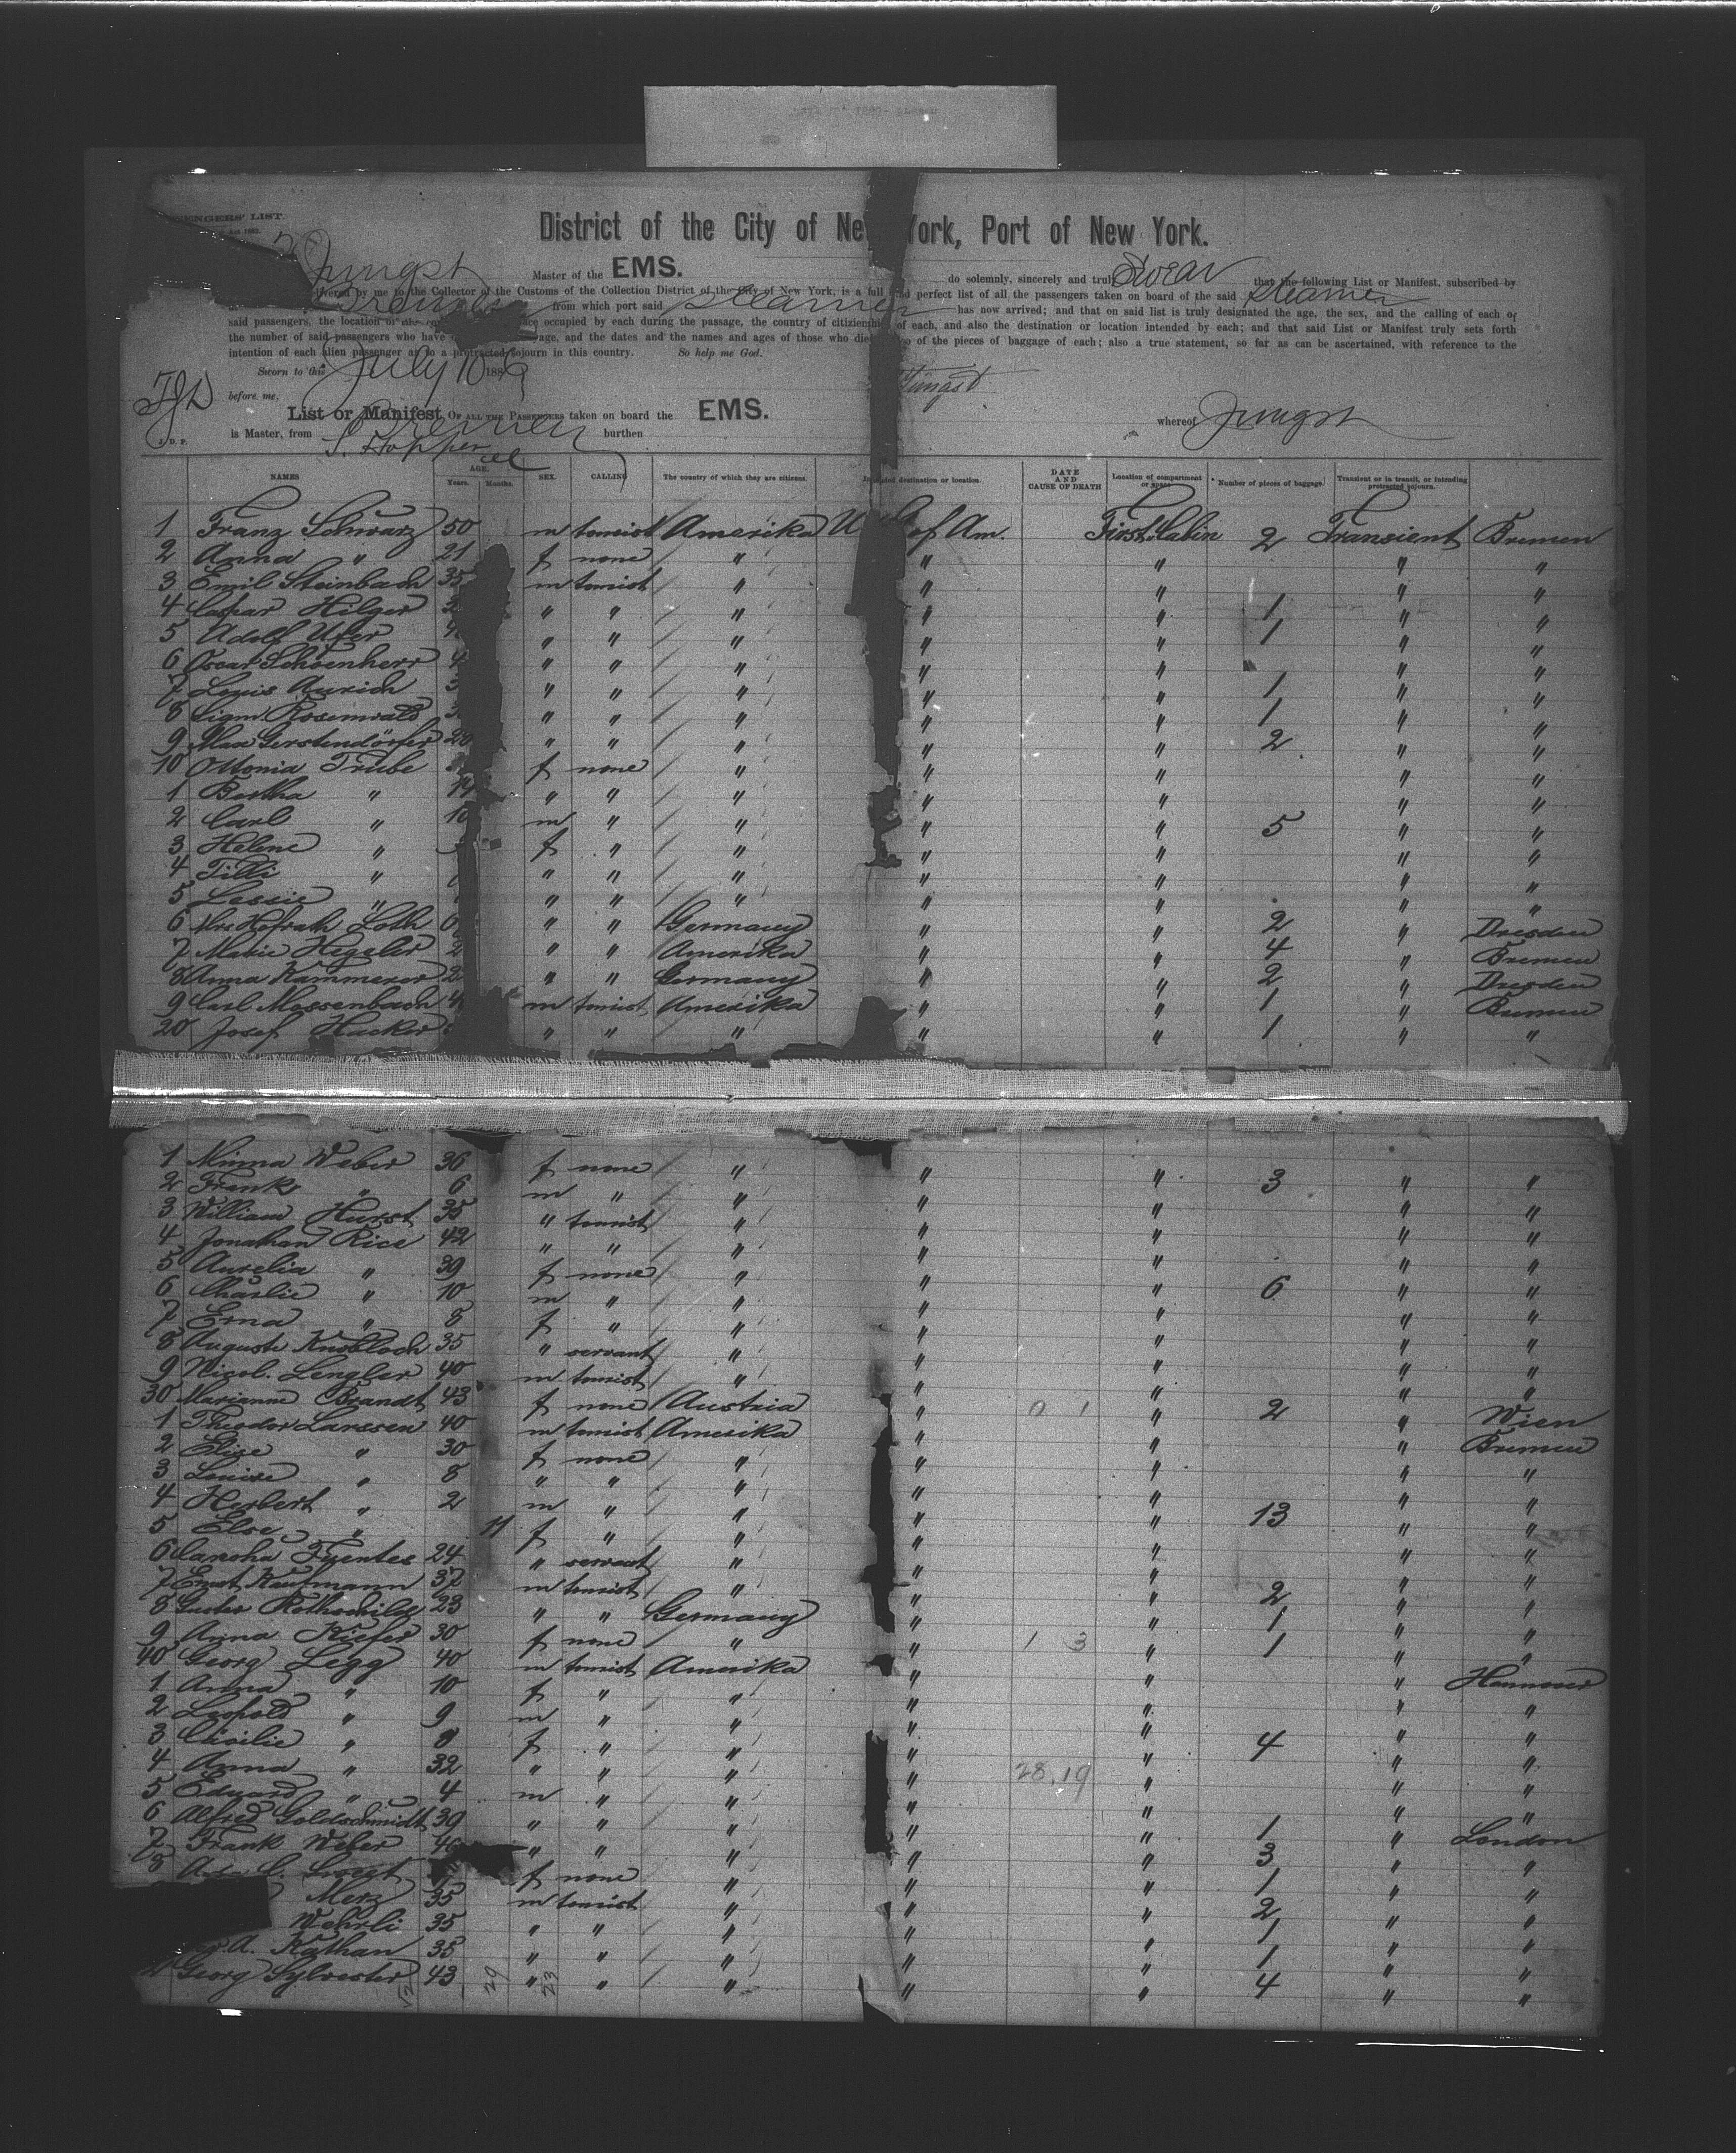 ENGERS' LIST.
District of the City of New York, Port of New York.
Jungst Master of the EMS. do solemnly, sincerely and truly Swear that the following List or Manifest, subscribed by
livered by me to the Collector of the Customs of the Collection District of the City of New York, is a full and perfect list of all the passengers taken on board of the said Steamer
from which port said Steamer has now arrived; and that on said list is truly designated the age, the sex, and the calling of each of
said passengers, the location of the occupied by each during the passage, the country of citizenship of each, and also the destination or location intended by each; and that said List or Manifest truly sets forth
the number of said passengers who have age, and the dates and the names and ages of those who died of the pieces of baggage of each; also a true statement, so far as can be ascertained, with reference to the
intention of each alien passenger as to a protracted sojourn in this country. So help me God.
Sworn to this July 10 1889 Jungst
before me,
List or Manifest OF ALL THE PASSENGERS taken on board the EMS. whereof Jungst
is Master, from Bremen burthen
NAMES AGE. Years. Months. SEX. CALLING The country of which they are citizens. Intended destination or location. DATE AND CAUSE OF DEATH Location of compartment or space. Number of pieces of baggage. Transient or in transit, or intending protracted sojourn.
1 Franz Schwarz 50 m tourist Amerika U of Am. First Cabin 2 Transient Bremen
2 Anna " 21 f none " " " " "
3 Emil Steinbach 35 m tourist " " " " "
4 Caspar Hilger " " " " " 1 " "
5 Adolf Ufer " " " " " 1 " "
6 Oscar Schoenherr " " " " " " "
7 Louis Aurich " " " " " 1 " "
8 Sigm. Rosenwald " " " " " 1 " "
9 Max Gerstendörfer " " " " " 2 " "
10 Ottonia Trube f none " " " " "
1 Bertha " " " " " " " "
2 Carl " m " " " " 5 " "
3 Helene " f " " " " " "
4 Tilli " " " " " " " "
5 Lessie " " " " " " " "
6 Mrs Hofrath Loth " " Germany " " 2 " Dresden
7 Marie Hegeler " " Amerika " " 4 " Bremen
8 Anna Kammerer " " Germany " " 2 " Dresden
9 Carl Messenbach m tourist Amerika " " 1 " Bremen
20 Josef Hacker " " " " " 1 " "
1 Minna Weber 36 f none " " " " "
2 Frank " 6 m " " " " 3 " "
3 William Hurst 35 " tourist " " " " "
4 Jonathan Rice 42 " " " " " " "
5 Aurelia " 39 f none " " " " "
6 Charlie " 10 m " " " " 6 " "
7 Erna " 8 f " " " " " "
8 Auguste Knobloch 35 " servant " " " " "
9 Nicol. Lengler 40 m tourist " " " " "
30 Marianne Brandt 43 f none Austria " 0 1 " 2 " Wien
1 Theodor Larssen 40 m tourist Amerika " " " Bremen
2 Elise " 30 f none " " " " "
3 Louise " 8 " " " " " " "
4 Herbert " 2 m " " " " 13 " "
5 Else " 11 f " " " " " "
6 Fuentes 24 " servant " " " " "
7 Ernst Kaufmann 37 m tourist " " " 2 " "
8 Rothschild 23 " " Germany " " 1 " "
9 Anna Kiefer 30 f none " " 1 3 " 1 " "
40 Georg Legg 40 m tourist Amerika " " " Hannover
1 Anna " 10 f " " " " " "
2 Leopold " 9 m " " " " " "
3 Cäcilie " 8 f " " " " 4 " "
4 Anna " 32 " " " " 28.19 " " "
5 Eduard " 4 m " " " " " "
6 Alfred Goldschmidt 39 " " " " " 1 " London
7 Frank Weber " " " " " 3 " "
8 C. f none " " " 1 " "
Merz 35 m tourist " " " 2 " "
Wehrli 35 " " " " " 1 " "
A. Kathan 35 " " " " " 1 " "
Georg Sylvester 43 " " " " " 4 " "
29 23